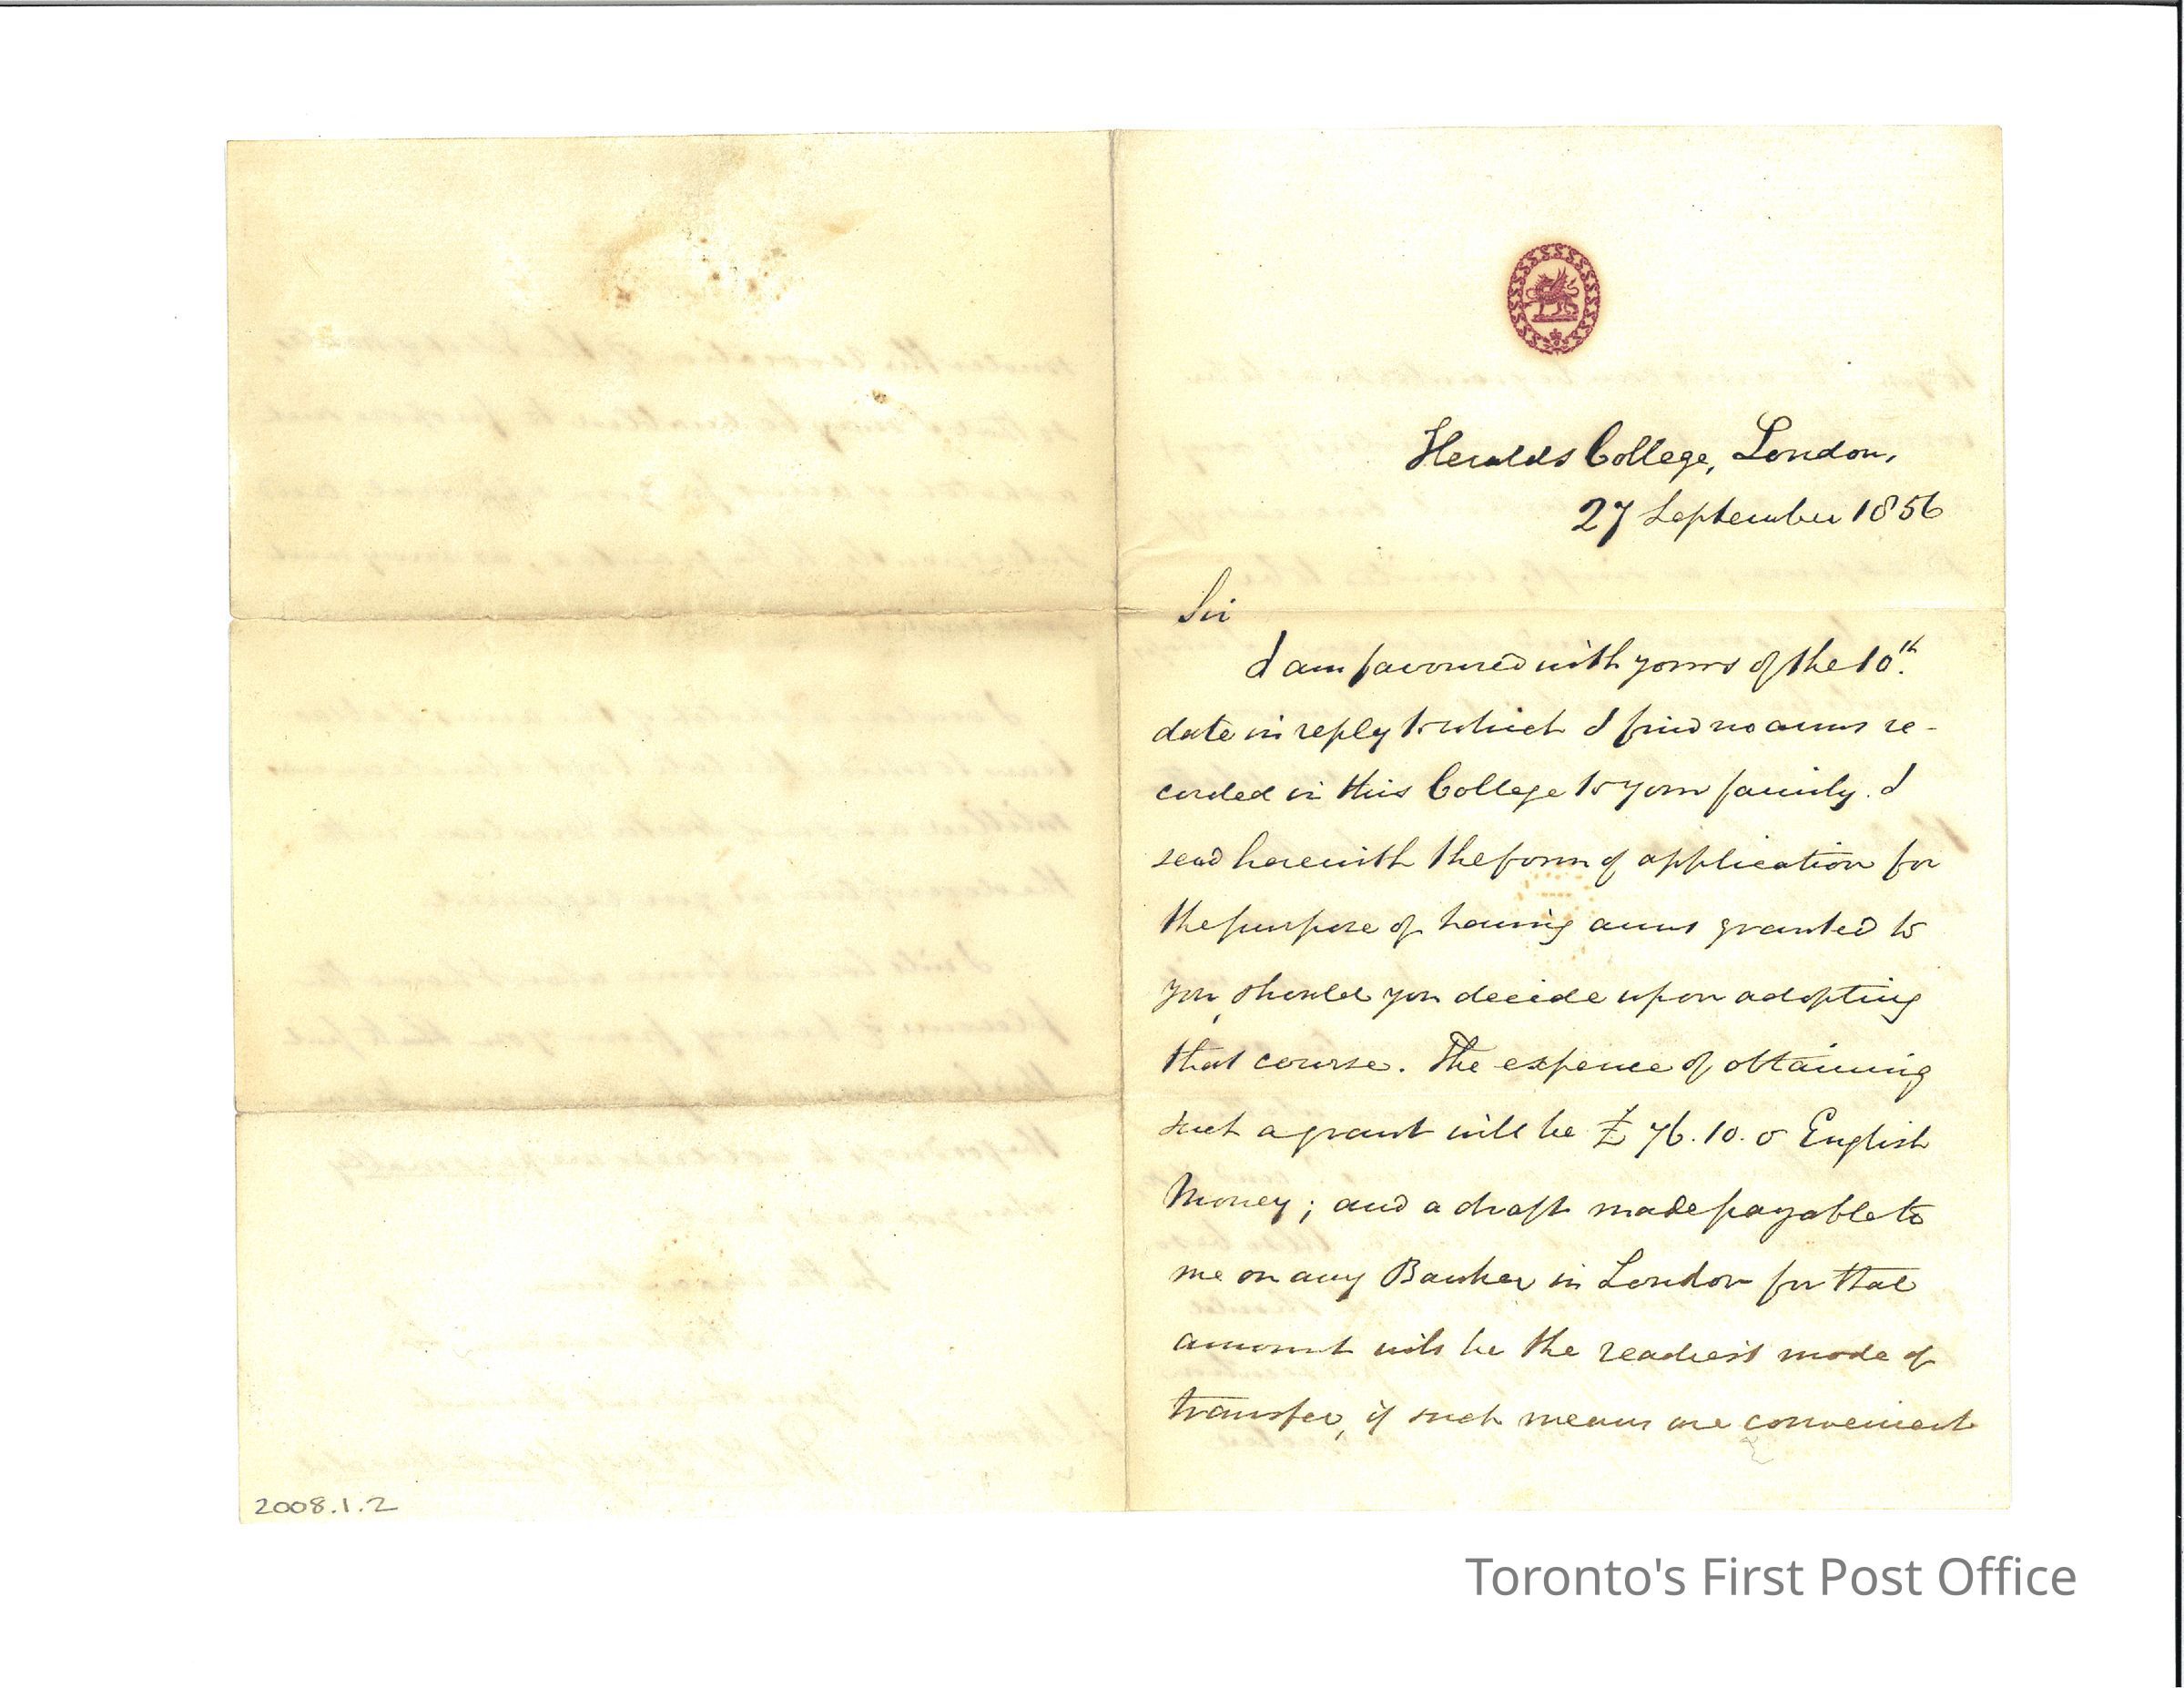 Heralds College, London,
27 September 1856
Sir
I am favoured with yours of the 10th.
date in reply to which I find no arms re-
corded in this College to your family. I
send herewith the form of application for
the purpose of having arms granted to
you, should you decide upon adopting
that course. The expence of obtaining
such a grant will be £76.10.0 English
Money; and a draft made payable to
me on any Banker in London for that
amount will be the readiest mode of
transfer, if such means are convenient
2008.1.2
Toronto's First Post Office